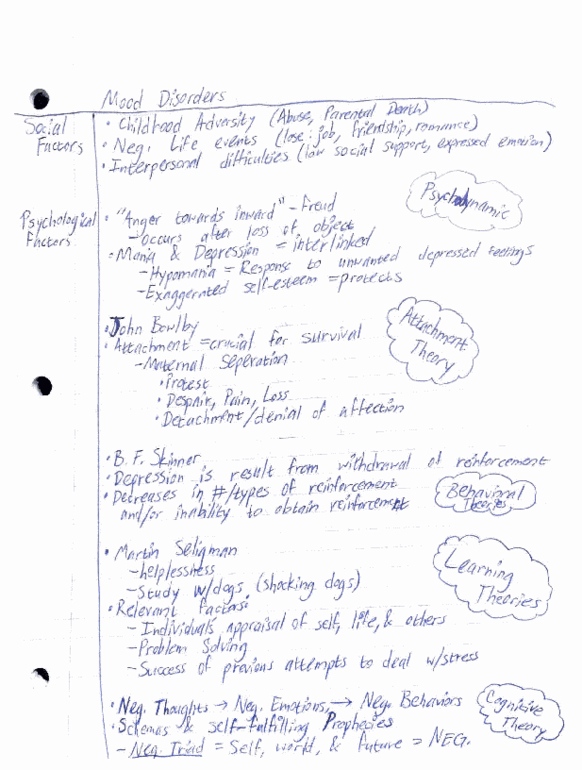 Mood Disorders
Social Factors
• Childhood Adversity (Abuse, Parental Death)
• Neg. Life events (lose: job, friendship, romance)
• Interpersonal difficulties (low social support, expressed emotion)
Psychodynamic
Psychological Factors
• "Anger towards inward" - Freud
- occurs after loss of object
• Mania & Depression = interlinked
- Hypomania = Response to unwanted depressed feelings
- Exaggerated self-esteem = protects
Attachment Theory
• John Bowlby
• Attachment = crucial for survival
- Maternal Seperation
• Protest
• Despair, Pain, Loss
• Detachment/denial of affection
• B. F. Skinner
• Depression is result from withdrawal of reinforcement
• Decreases in #/types of reinforcement
and/or inability to obtain reinforcement
Behavioral Theories
• Martin Seligman
- helplessness
- Study w/dogs (shocking dogs)
Learning Theories
• Relevant factors:
- Individuals appraisal of self, life, & others
- Problem Solving
- Success of previous attempts to deal w/stress
• Neg. Thoughts → Neg. Emotions, → Neg. Behaviors
Cognitive Theory
• Schemas & self-fulfilling Prophesies
- Neg. Triad = Self, world, & future = NEG.